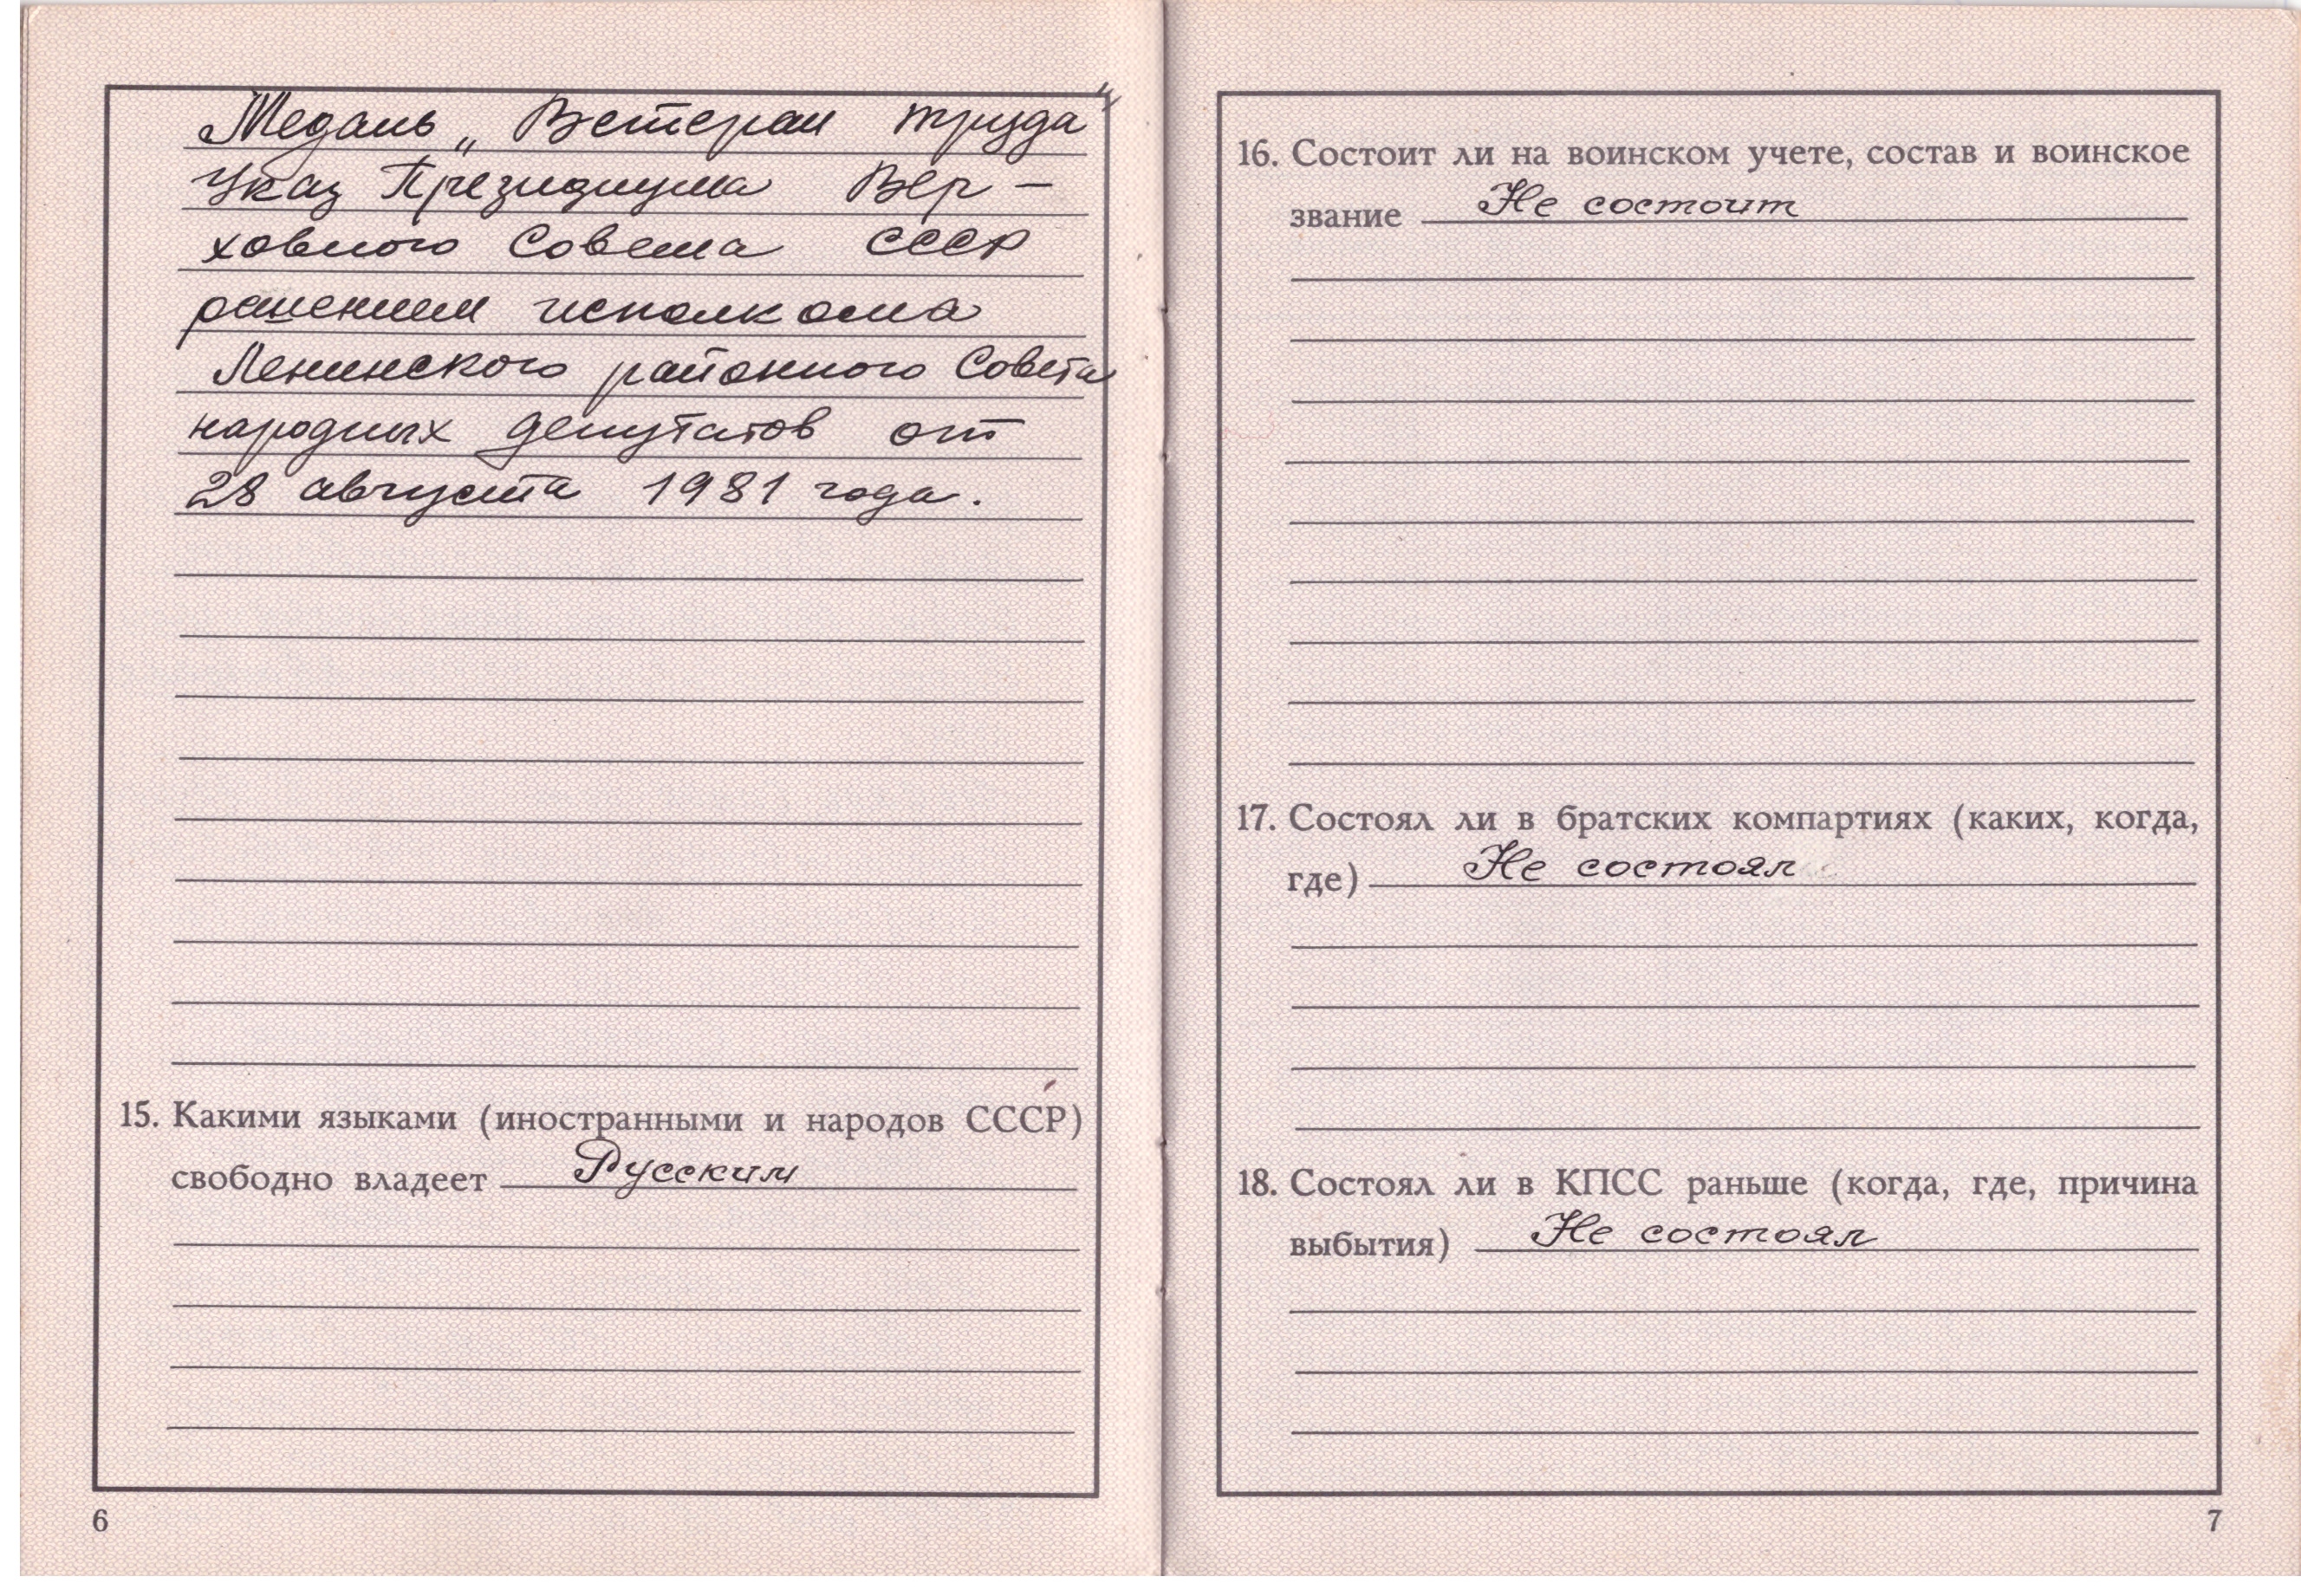 Медаль „Ветеран труда"
Указ Президиума Вер-
ховного Совета СССР
решением исполкома
Ленинского районного Совета
народных депутатов от
28 августа 1981 года.
15. Какими языками (иностранными и народов СССР)
свободно владеет Русским
6
16. Состоит ли на воинском учете, состав и воинское
звание Не состоит
17. Состоял ли в братских компартиях (каких, когда,
где) Не состоял
18. Состоял ли в КПСС раньше (когда, где, причина
выбытия) Не состоял
7